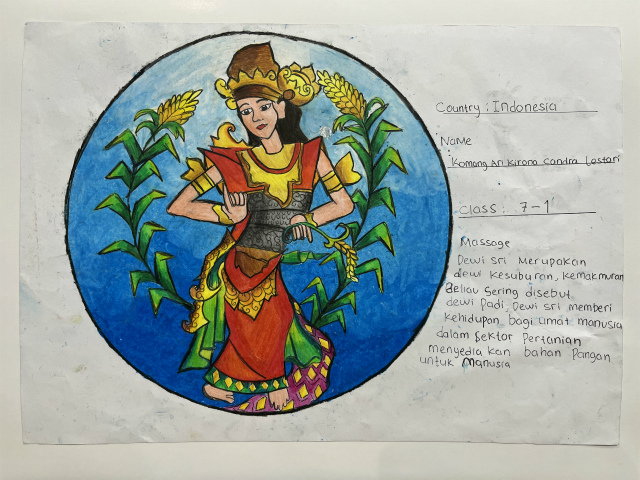 Country : Indonesia
Name
: Komang Ari Kirana Candra Lestari
Class : 7-1
Massage
Dewi Sri Merupakan
dewi kesuburan, kemakmuran
Beliau Sering disebut
dewi Padi, Dewi Sri memberi
kehidupan bagi umat manusia
dalam Sektor Pertanian
menyediakan bahan Pangan
untuk Manusia